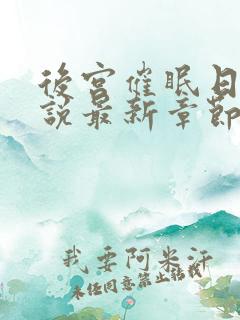 後宮催眠日
說最新章節
我要阿米汗
未經同意禁止轉載